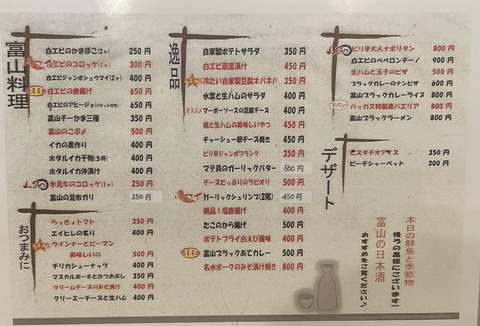 富山料理
白エビのかまぼこ(2ヶ) 250 円
白エビのコロッケ(1ヶ) 300 円
白エビジャンボシュウマイ(2ヶ) 400 円
白エビの唐揚げ 650 円
白エビのアヒージョ 650 円
富山チーかま三種 350 円
富山のこぶメ 500 円
イカの黒作り 400 円
ホタルイカ干物(5杯) 400 円
ホタルイカ沖漬け 400 円
氷見牛のコロッケ(1ヶ) 250 円
富山の昆布ガリ 250 円
おつまみに
らっきょトマト 350 円
エイヒレの炙り 400 円
ウインナーとピーマン
美味しいの 500 円
チリカシューナッツ 400 円
マスカルポーネとかつおぶし 350 円
クリームチーズのみそ漬け 400 円
クリーミーチーズと生ハム 400 円
逸品
自家製ポテトサラダ 350 円
白エビ南蛮漬け 450 円
冷たい自家製豆腐ネバネバ 550 円
水菜のサラダ 400 円
オススメ マーボーソースの豆腐チーズ 400 円
鯵と生ハムの美味しいやつ 450 円
チャーシュー卵チーズ焼き 450 円
ピリ辛ジャンボフランク 350 円
マテ貝のガーリックバター 500 円
チーズたっぷりのラビオリ 500 円
ガーリックシュリンプ(2尾) 450 円
絶品!塩唐揚げ 400 円
たこのから揚げ 500 円
ポテトフライ白えび風味 400 円
富山ブラックあてカレー 500 円
名水ポークのみそ漬け焼き 800 円
ピリ辛大人ナポリタン 800 円
白エビのペペロンチーノ 900 円
生ハムと玉子のピザ 500 円
ブラックカレーのナンピザ 600 円
富山ブラックカレーライス 800 円
バッカス特製黒パエリア 800 円
富山ブラックラーメン 800 円
デザート
ピスタチオアイス 350 円
ピーチシャーベット 300 円
本日の鮮魚と季節物
富山の日本酒